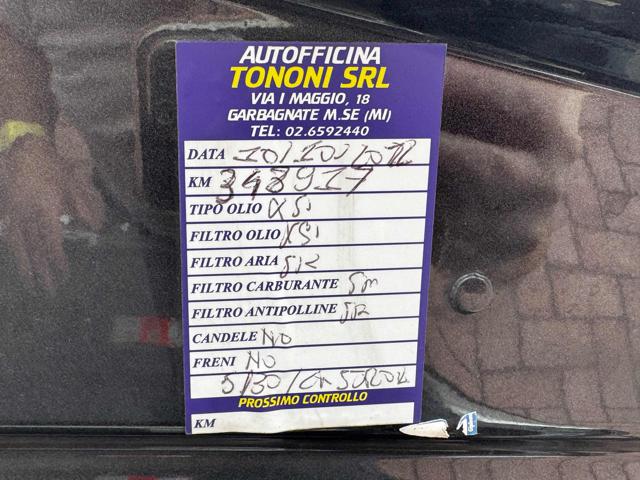 AUTOFFICINA
TONONI SRL
VIA I MAGGIO, 18
GARBAGNATE M.SE (MI)
TEL: 02.6592440
DATA
KM 348917
TIPO OLIO SI
FILTRO OLIO SI
FILTRO ARIA
FILTRO CARBURANTE
FILTRO ANTIPOLLINE
CANDELE NO
FRENI NO
5/30
PROSSIMO CONTROLLO
KM